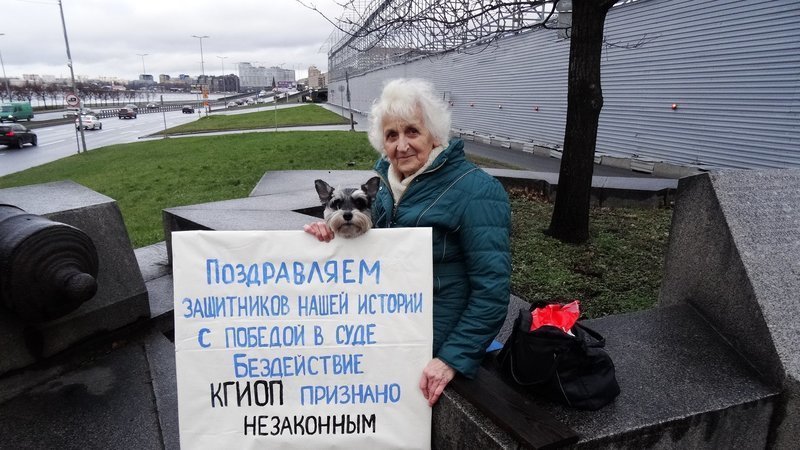 Поздравляем
защитников нашей истории
с победой в суде
Бездействие
КГИОП признано
незаконным